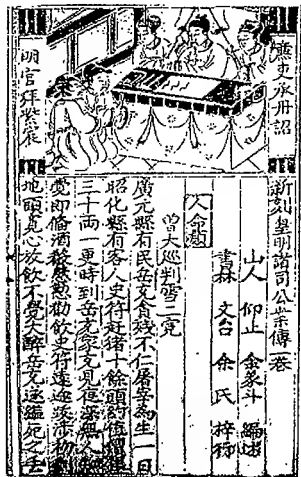 廉吏承丹詔
明官拜紫宸
新刻皇明諸司公案傳一卷
山人 仰止 余象斗 編述
書林 文台 余氏 梓行
人命類
曾大巡判雪二冤
廣元縣有民岳充貪殘不仁屠宰為生一日
昭化縣有客人史符赶猪十餘頭約値銀
三十兩一更時到岳充家充見夜深無人
覺即俻酒殽慇懃勸飲史符連途跋涉初到
地頭寬心放飲不覺大醉岳充遂縊死之丟